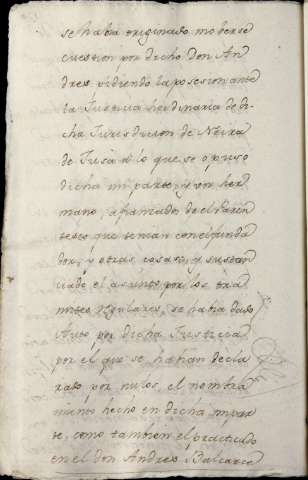 se havia originado moderse
cuestion por dicho Don An
dres pidiendo la posesion ante
la Justicia hordinaria de di
cha Jurisdicion de Neira
de Jusa a lo que se opuso
dicha mi parte, y su her
mano, afianzado de el Paren
tesco que tenian con el funda
dor, y otras cosas, y sustan
ciado el asunto por los tra
mites regulares, se havia dado
Auto por dicha Justicia
por el que se havian decla
rado por nulos, el nombra
miento hecho en dicha mi par
te, como tambien el practicado
en el don Andres Balcarce